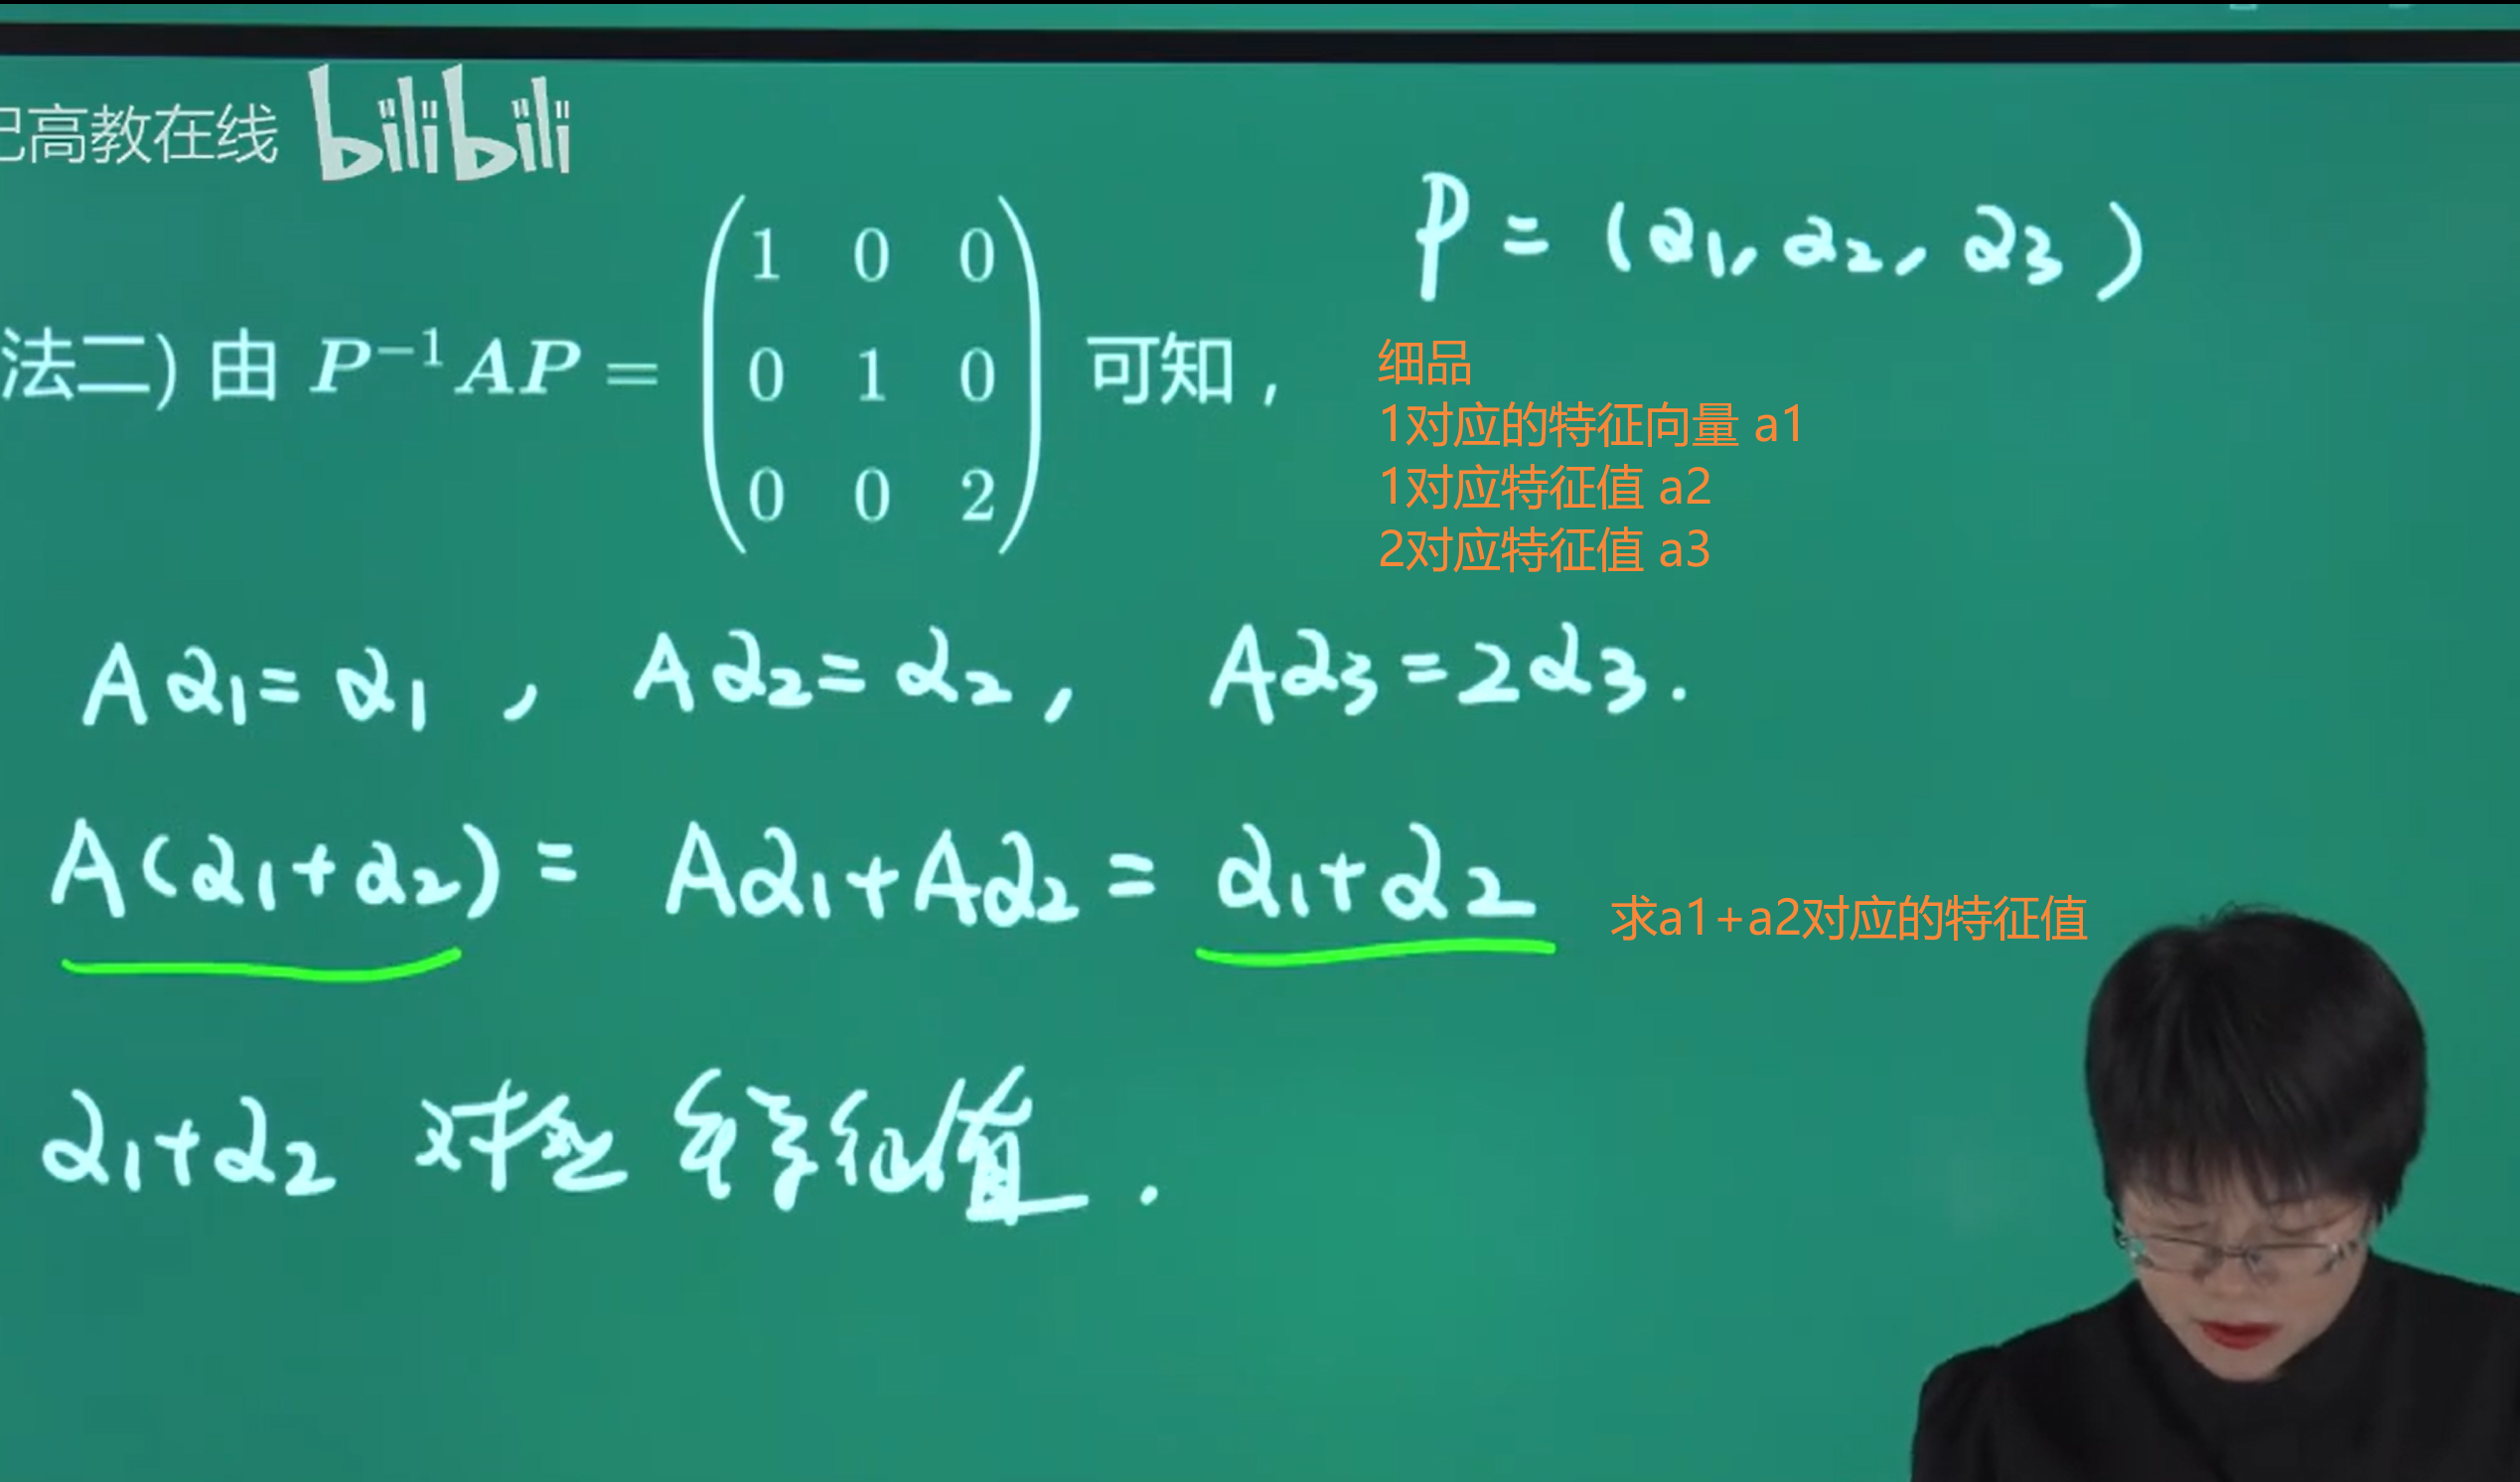 高教在线 bilibili
P = (α1, α2, α3)
法二) 由 P⁻¹AP = (1 0 0
0 1 0
0 0 2) 可知，
细品
1对应的特征向量 a1
1对应特征值 a2
2对应特征值 a3
Aα1=α1 , Aα2=α2, Aα3=2α3.
A(α1+α2) = Aα1+Aα2 = α1+α2
求a1+a2对应的特征值
α1+α2 对应 特征值.